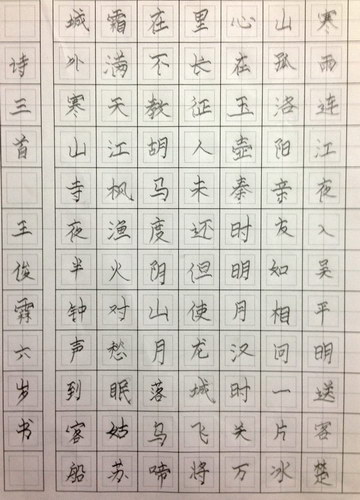 寒雨连江夜入吴平明送客楚
山孤洛阳亲友如相问一片冰
心在玉壶秦时明月汉时关万
里长征人未还但使龙城飞将
在不教胡马度阴山月落乌啼
霜满天江枫渔火对愁眠姑苏
城外寒山寺夜半钟声到客船
诗三首 王俊霖六岁书